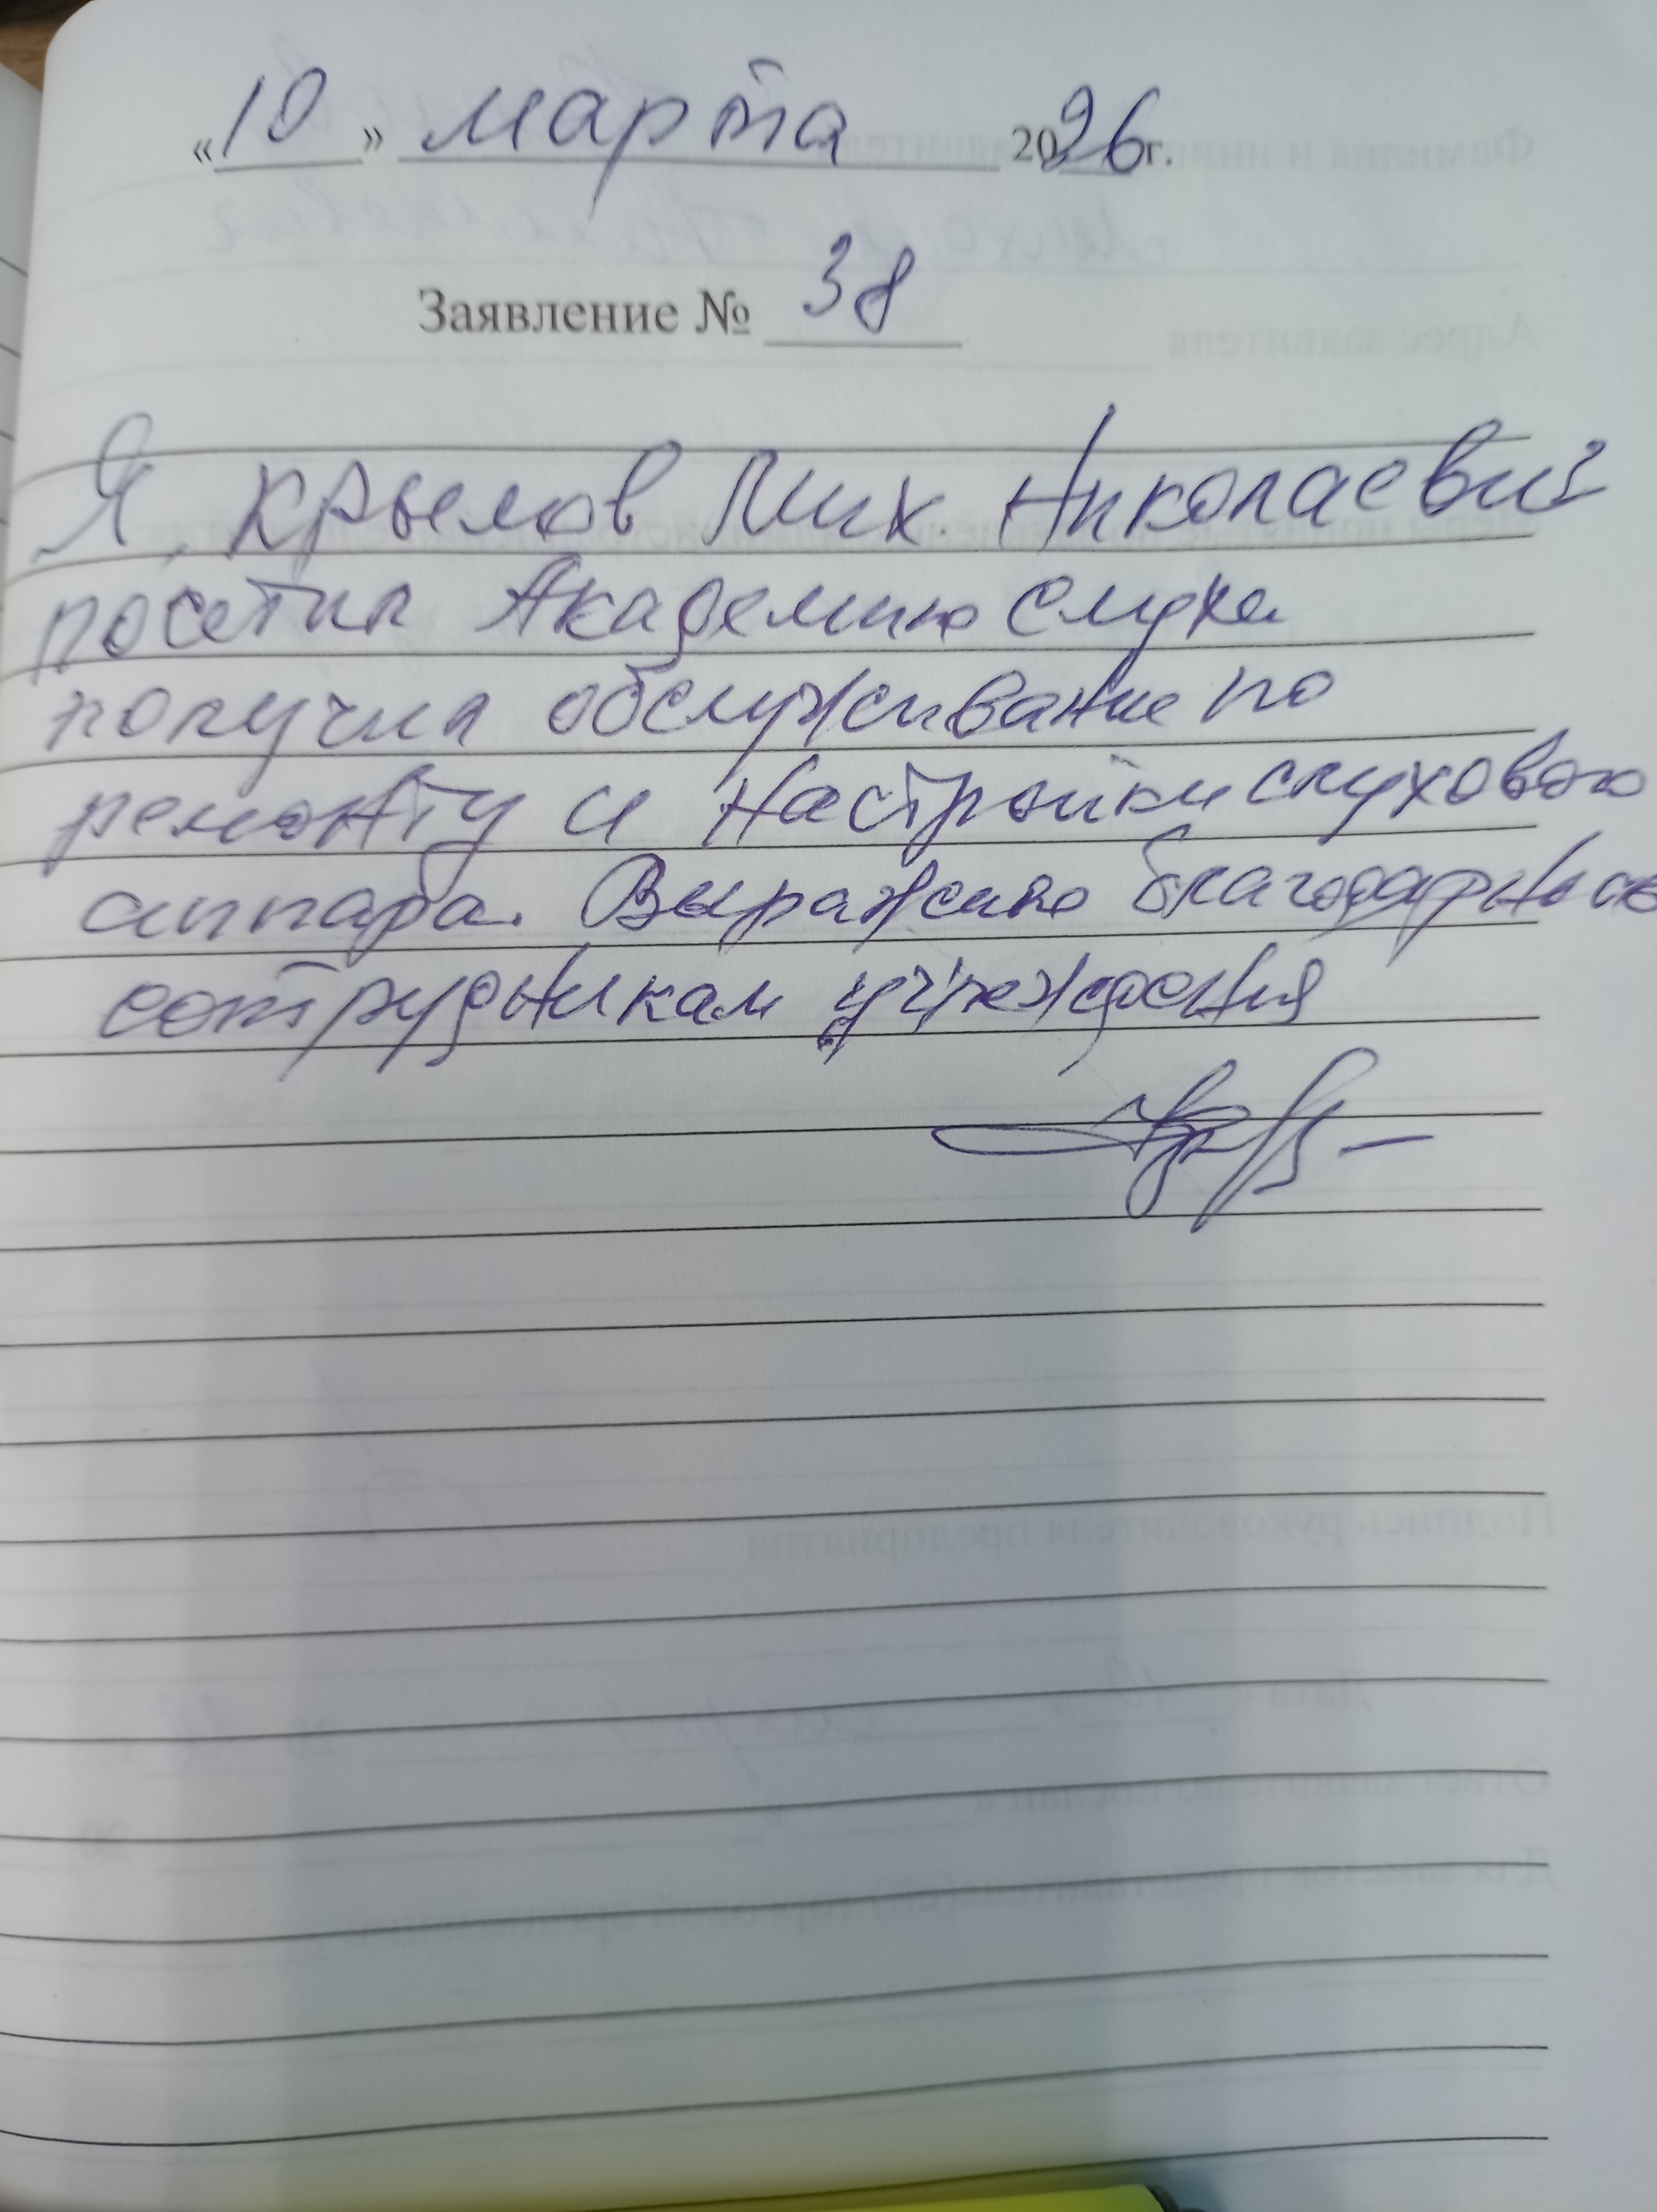 «10» марта 2026г.
Заявление № 38
Я, Крылов Мих. Николаевич
посетил Академию слуха
получил обслуживание по
ремонту и настройки слухового
аппара. Выражаю благодарность
сотрудникам учреждения